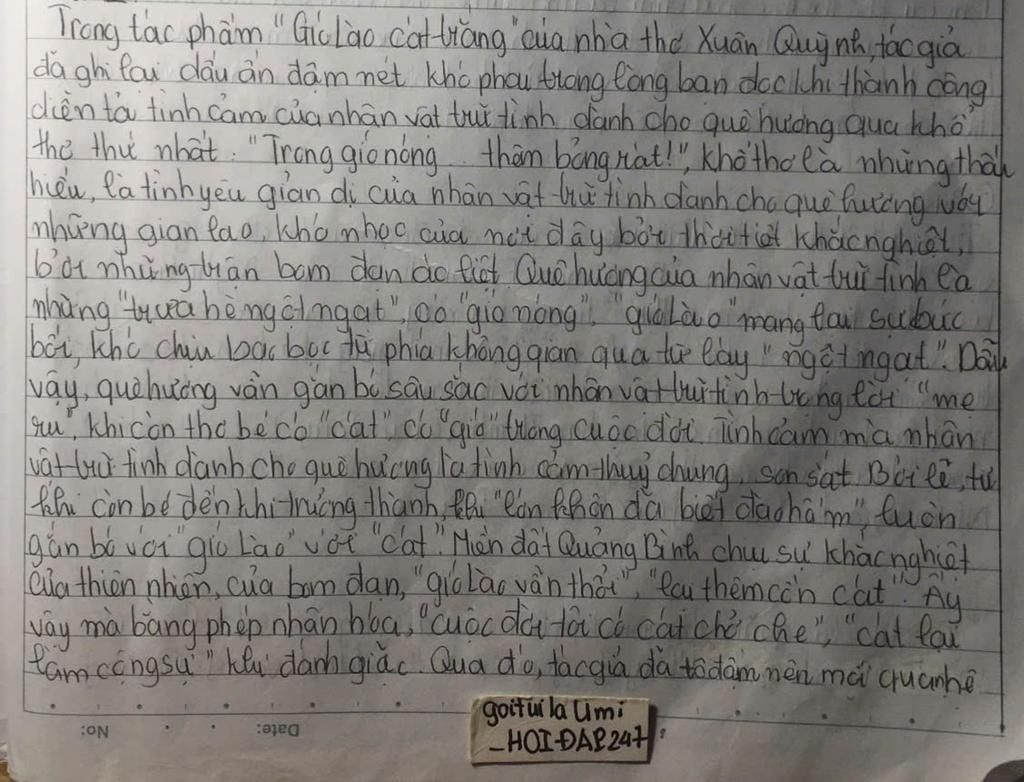 Trong tác phẩm "Gió Lào cát trắng" của nhà thơ Xuân Quỳnh, tác giả
đã ghi lại dấu ấn đậm nét khó phai trong lòng bạn đọc khi thành công
diễn tả tình cảm của nhân vật trữ tình dành cho quê hương qua khổ
thơ thứ nhất. "Trong gió nóng... thâm bỏng rát!", khổ thơ là những thấu
hiểu, là tình yêu giản dị của nhân vật trữ tình dành cho quê hương với
những gian lao, khó nhọc của nơi đây bởi thời tiết khắc nghiệt,
bởi những trận bom đạn ác liệt. Quê hương của nhân vật trữ tình là
những "trưa hè ngột ngạt", có "gió nóng", "gió Lào" mang lại sự bức
bối, khó chịu bao bọc từ phía không gian qua từ láy "ngột ngạt". Dẫu
vậy, quê hương vẫn gắn bó sâu sắc với nhân vật trữ tình trong lời "mẹ
ru", khi còn thơ bé có "cát", có "gió" trong cuộc đời. Tình cảm mà nhân
vật trữ tình dành cho quê hương là tình cảm thuỷ chung, son sắt. Bởi lẽ, từ
khi còn bé đến khi trưởng thành, khi "lớn khôn đã biết đào hầm", luôn
gắn bó với "gió Lào" với "cát". Miền đất Quảng Bình chịu sự khắc nghiệt
của thiên nhiên, của bom đạn, "gió Lào vẫn thổi", "lại thêm cồn cát". Ấy
vậy mà bằng phép nhân hóa, "cuộc đời tôi có cát chở che", "cát lại
làm công sự" khi đánh giặc. Qua đó, tác giả đã tô đậm nên mối quan hệ
No: Date:
goitui la Umi
_HOI-ĐAP247